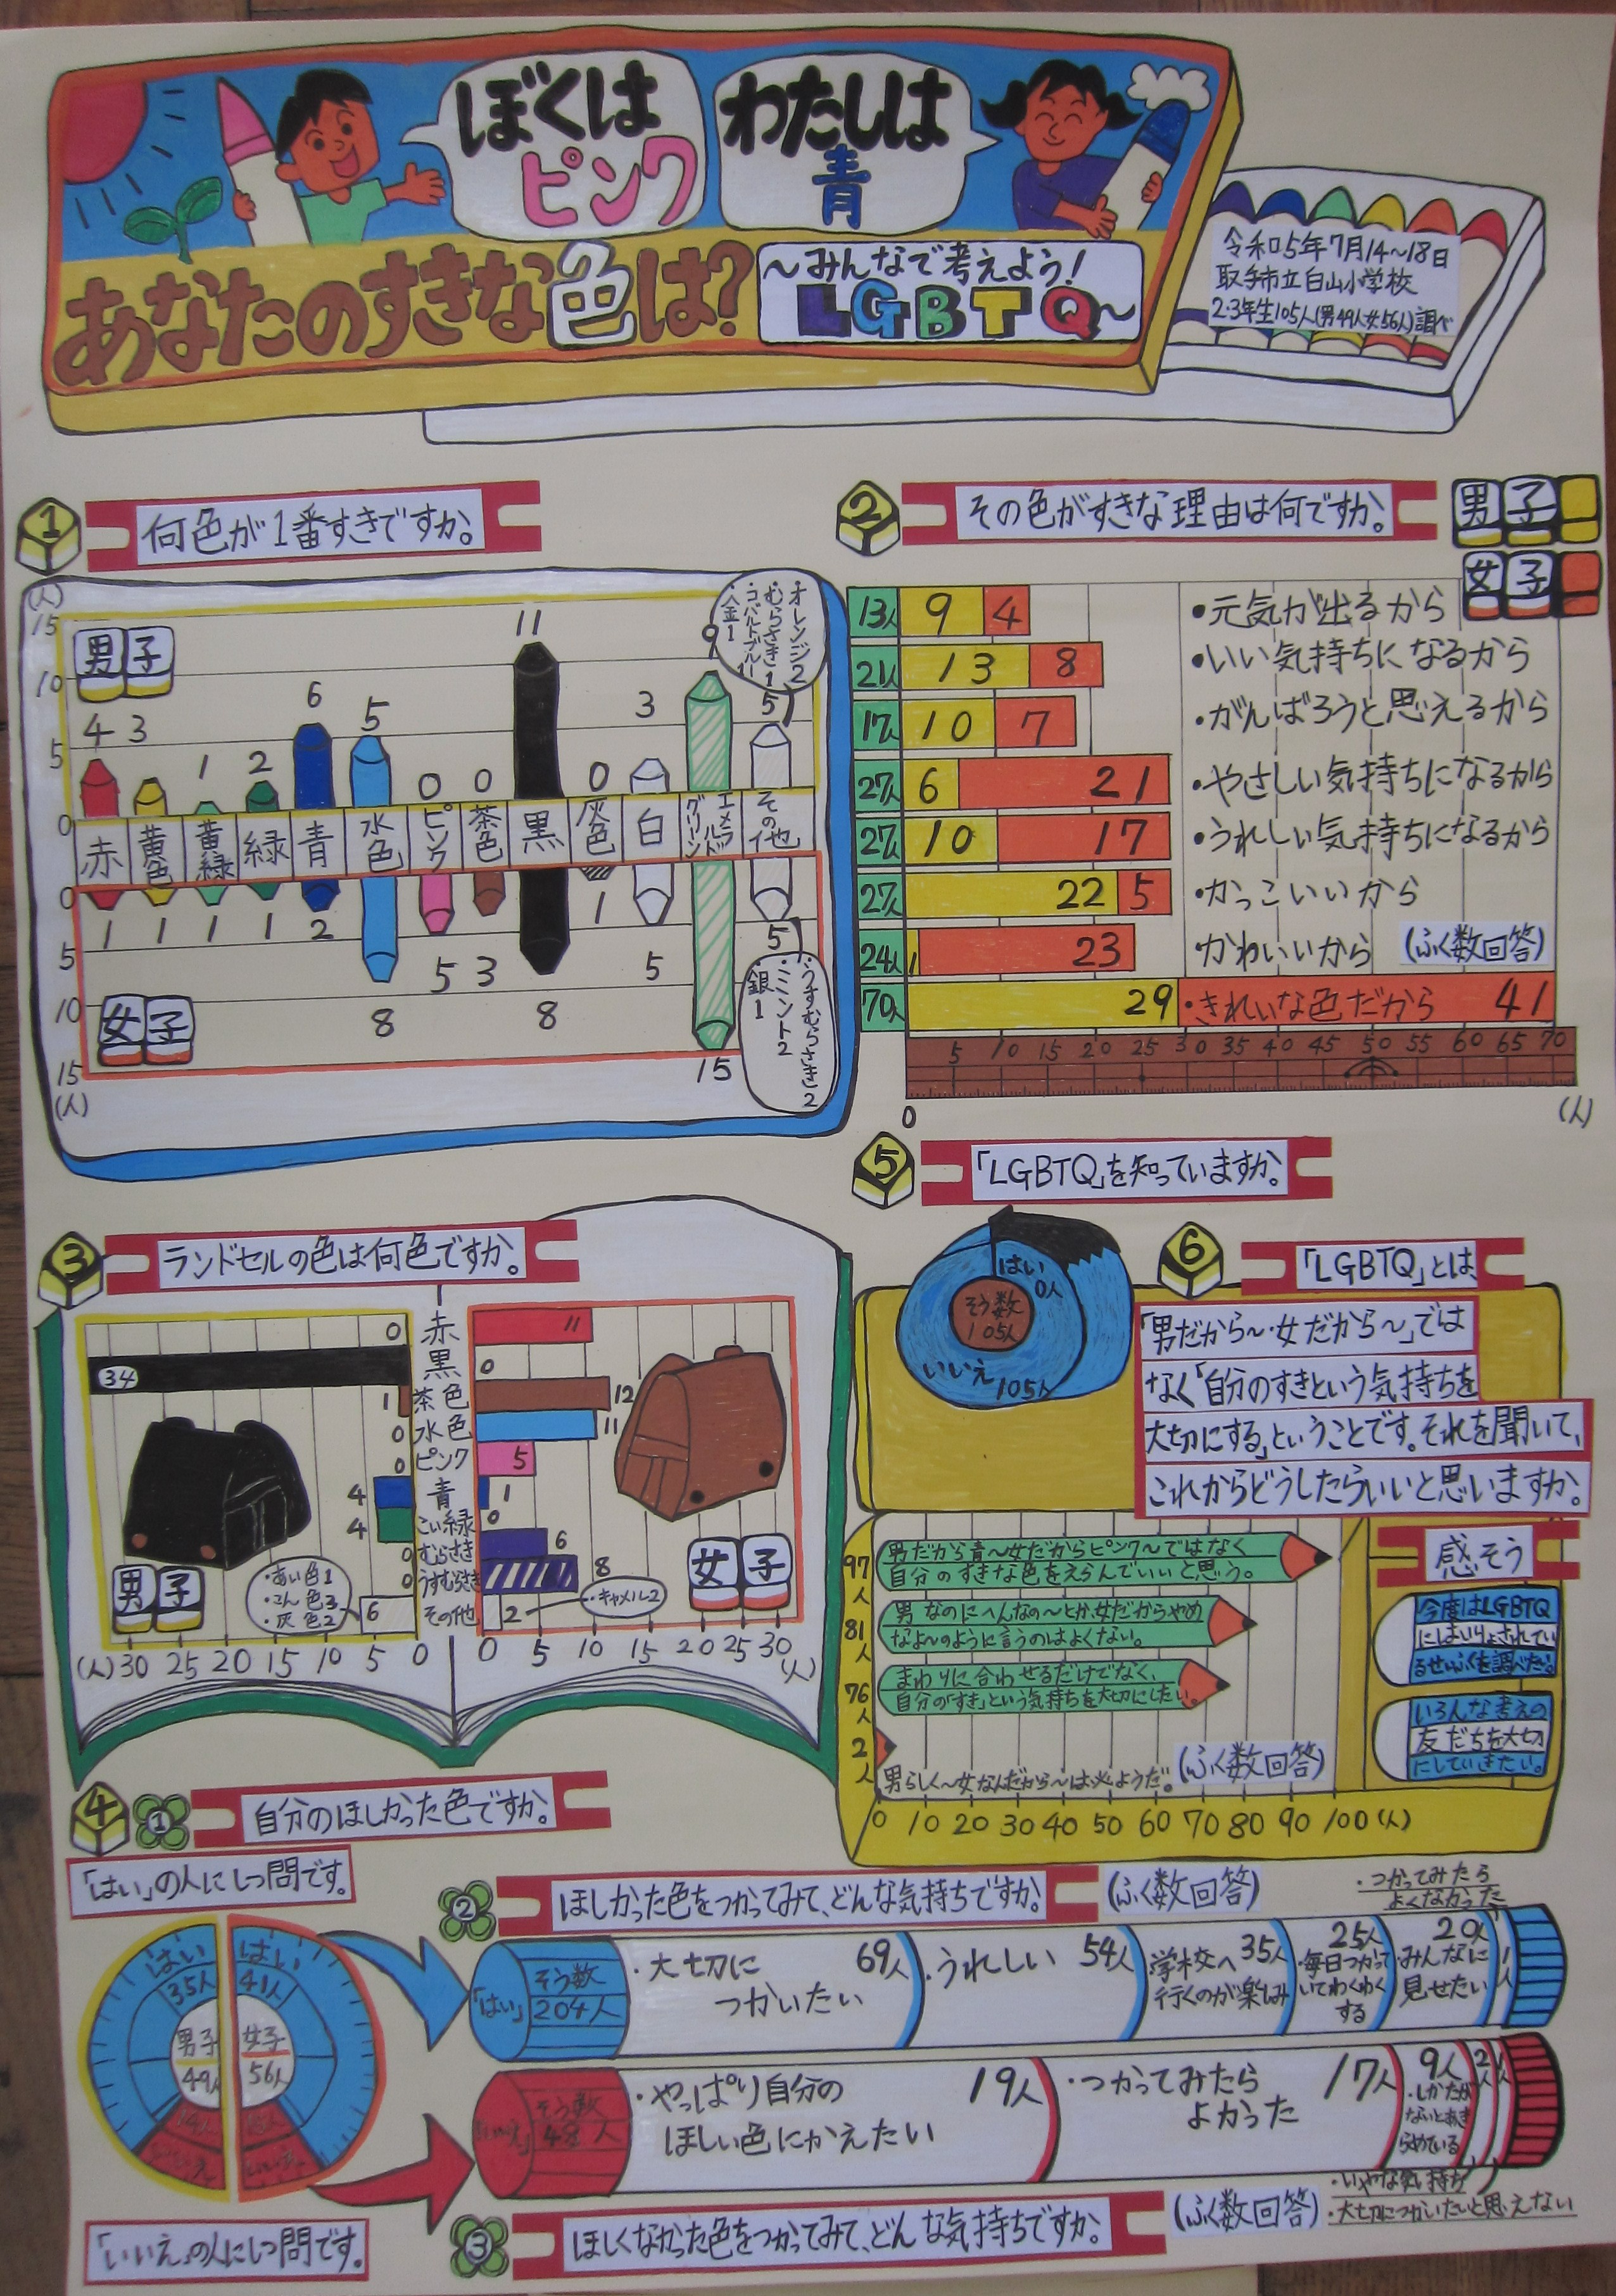 ぼくは
ピンク
わたしは
青
あなたのすきな色は?
～みんなで考えよう!
LGBTQ～
令和5年7月14～18日
取手市立白山小学校
2・3年生105人(男49人女56人)調べ
1 何色が1番すきですか。
(人)
15
10
5
0
男子
4 3 1 2 6 5 0 0 11 0 3 9 5
オレンジ2
むらさき1
・コバルトブルー1
・金1
赤 黄色 黄緑 緑 青 水色 ピンク 茶色 黒 灰色 白 エメラルドグリーン その他
0
5
10
15
(人)
女子
1 1 1 1 2 8 5 3 8 1 5 15 5
・うすむらさき2
・ミント2
銀1
2 その色がすきな理由は何ですか。
男子
女子
13人 9 4 ・元気が出るから
21人 13 8 ・いい気持ちになるから
17人 10 7 ・がんばろうと思えるから
27人 6 21 ・やさしい気持ちになるから
27人 10 17 ・うれしい気持ちになるから
27人 22 5 ・かっこいいから
24人 1 23 かわいいから (ふく数回答)
70人 29 ・きれいな色だから 41
5 10 15 20 25 30 35 40 45 50 55 60 65 70
0 (人)
3 ランドセルの色は何色ですか。
0 赤 11
34 黒 0
1 茶色 12
0 水色 11
0 ピンク 5
4 青 1
4 こい緑 0
0 むらさき 6
0 うすむらさき 8
6 その他 2
男子
・あい色1
・こん色3
・灰色2
女子
・キャメル2
(人) 30 25 20 15 10 5 0
0 5 10 15 20 25 30 (人)
5 「LGBTQ」を知っていますか。
はい
0人
そう数
105人
いいえ
105人
6 「LGBTQ」とは、
「男だから～・女だから～」では
なく「自分のすきという気持ちを
大切にする」ということです。それを聞いて、
これからどうしたらいいと思いますか。
97人 男だから青～女だからピンク～ではなく
自分のすきな色をえらんでいいと思う。
81人 男なのにへんなの～とか、女だからやめ
なよ～のように言うのはよくない。
76人 まわりに合わせるだけでなく、
自分の「すき」という気持ちを大切にしたい。
2人 男らしく～女なんだから～は
(ふく数回答)
0 10 20 30 40 50 60 70 80 90 100 (人)
感そう
今度はLGBTQ
にはいりょされてい
るせいふくを調べたい。
いろんな考えの
友だちを大切
にしていきたい。
4 1 自分のほしかった色ですか。
「はい」の人にしつ問です。
はい
35人
男子
49人
14人
いいえ
はい
41人
女子
56人
いいえ
2 ほしかった色をつかってみて、どんな気持ちですか。 (ふく数回答)
「はい」
そう数
204人
・大切に
つかいたい 69人
・うれしい 54人
・学校へ
行くのが楽しみ 35人
25人
・毎日つかって
いてわくわく
する
20人
・みんなに
見せたい
1人
・つかってみたら
よくなかった
「いいえ」
そう数
48人
・やっぱり自分の
ほしい色にかえたい 19人
・つかってみたら
よかった 17人
9人
・しかたが
ないとあき
らめている
2人
1人
・いやな気持ち
・大切につかいたいと思えない
「いいえ」の人にしつ問です。
3 ほしくなかった色をつかってみて、どんな気持ちですか。 (ふく数回答)